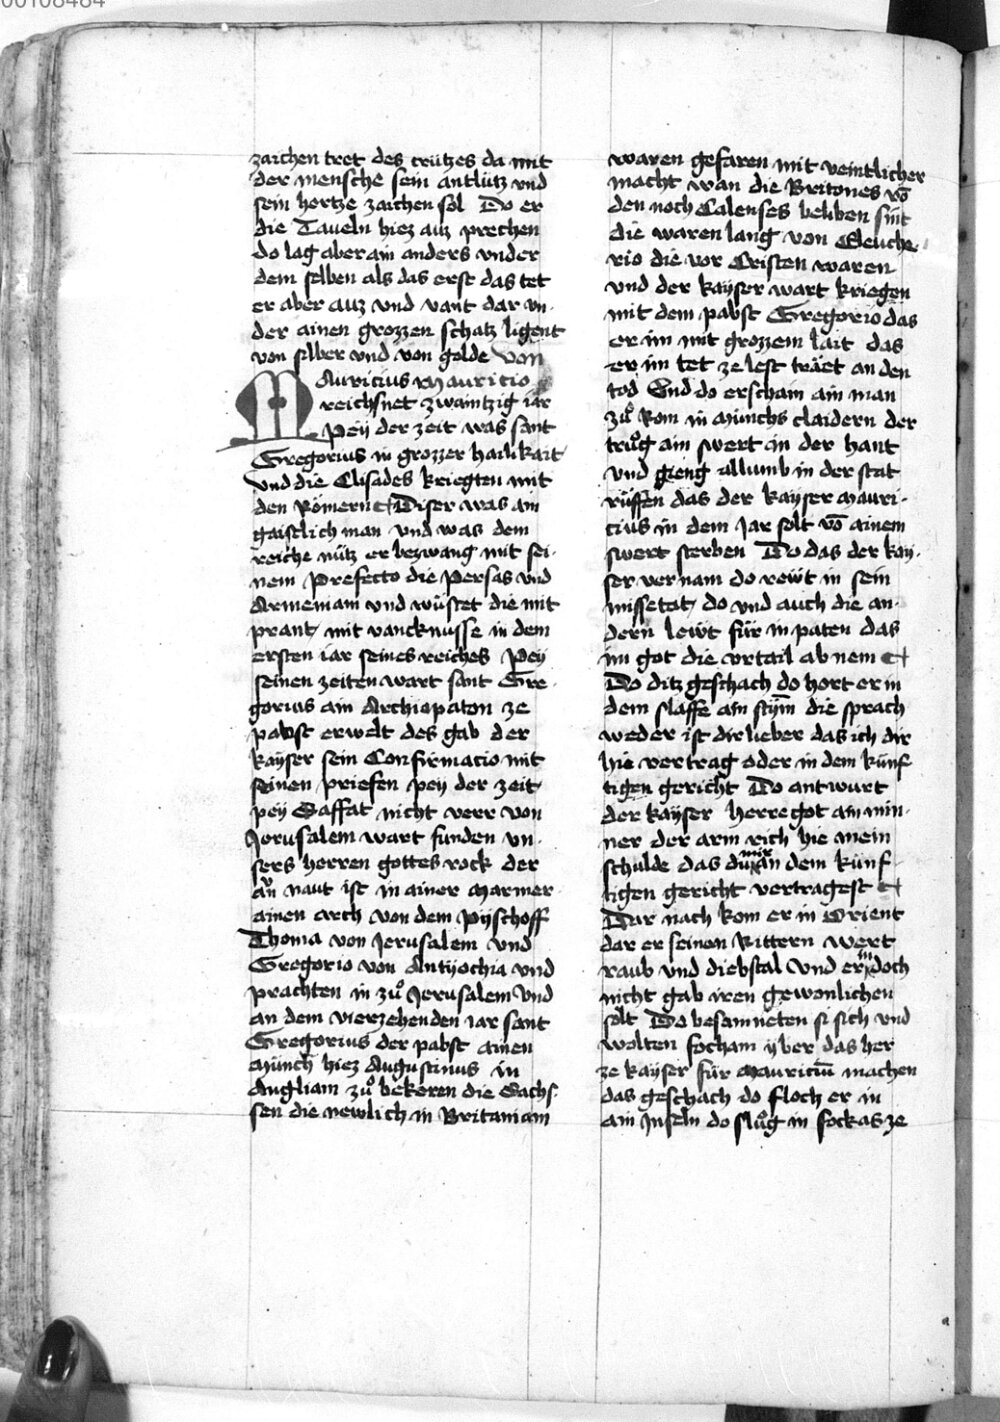 00108484
zaichen tret des crützes da mit
der mensche sein antlütz vnd
sein hertze zaichen sol Do er
die Taueln hiez auz prechen
do lag aber ain anders vnder
dem selben als das erst das tet
er aber auz vnd vant dar vn-
der ainen grozzen schatz ligent
von silber vnd von golde von
Mauricius Mauricio
reichsnet zwaintzig iar
Peÿ der zeit was sant
Gregorius in grozzer hailikait
vnd die Clisades kriegten mit
den Römern Diser was ain
gaistlich man vnd was dem
reiche nütz er bezwang mit sei-
nem Prefecto die Persas vnd
Armeniam vnd wüstet die mit
prant mit vancknusse in dem
ersten iar seines reiches Peÿ
seinen zeiten wart sant Gre-
gorius ain Archiopaton ze
pabst erwelt des gab der
kayser sein Confirmacio mit
seinen priefen peÿ der zeit
peÿ Saffat nicht verr von
Jerusalem wart funden vn-
sers herren gottes rock der
an naut ist in ainer marmer-
ainen arch von dem Pÿschoff
Thoma von Jerusalem vnd
Gregorio von Antÿochia vnd
prachten in zuͦ Jerusalem Vnd
an dem vierzehenden iar sant
Gregorius der pabst ainen
münch hiez Augustinus in
Angliam zuͦ bekeren die Sachs-
sen die newlich in Britaniam
waren gefaren mit veintlicher
macht wan die Britones vō
den noch Calenses beliben sint
die waren lang von Eleuche-
rio die vor Cristen waren
vnd der kayser wart kriegen
mit dem pabst Gregorio das
er im mit grozzem lait das
er im tet ze lest träet an den
tod Vnd do erschain ain man
zuͦ Rom in münchs claidern der
truͦg ain swert in der hant
vnd gieng allumb in der stat
rüffen das der kayser mauri-
cius in dem Jar solt vō ainem
swert sterben Do das der kay-
ser vernam do rewt in sein
missetat do vnd auch die an-
dern lewt für in paten das
im got die vrtail ab nem
Do ditz geschach do hort er in
dem slaffe ain stÿm die sprach
weder ist dir lieber das ich dir
hie vertrag oder in dem künf
tigen gericht Do antwurt
der kayser herre got ain min-
ner der arm rich hie mein
schulde das du mir an dem künf
tigen gericht vertragest
Dar nach kom er in Orient
dar er seinen Rittern wert
raub vnd diebstal Vnd er in doch
nicht gab iren gewonlichen
solt Do besamneten si sich vnd
wolten focham ÿber das her
ze kayser für mauriciū machen
das geschach do floch er in
ain Jnseln do sluͦg in fockas ze